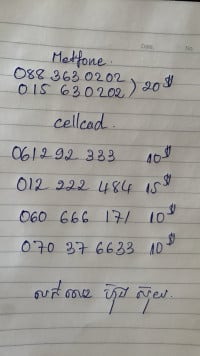 Metfone.
088 363 0202
015 63 0202 ) 20$
Cellcad.
0612 92 333 10$
012 222 484 15$
060 666 171 10$
070 37 6633 10$
លក់ដោយ ហ៊ុយ ស៊ុយ.